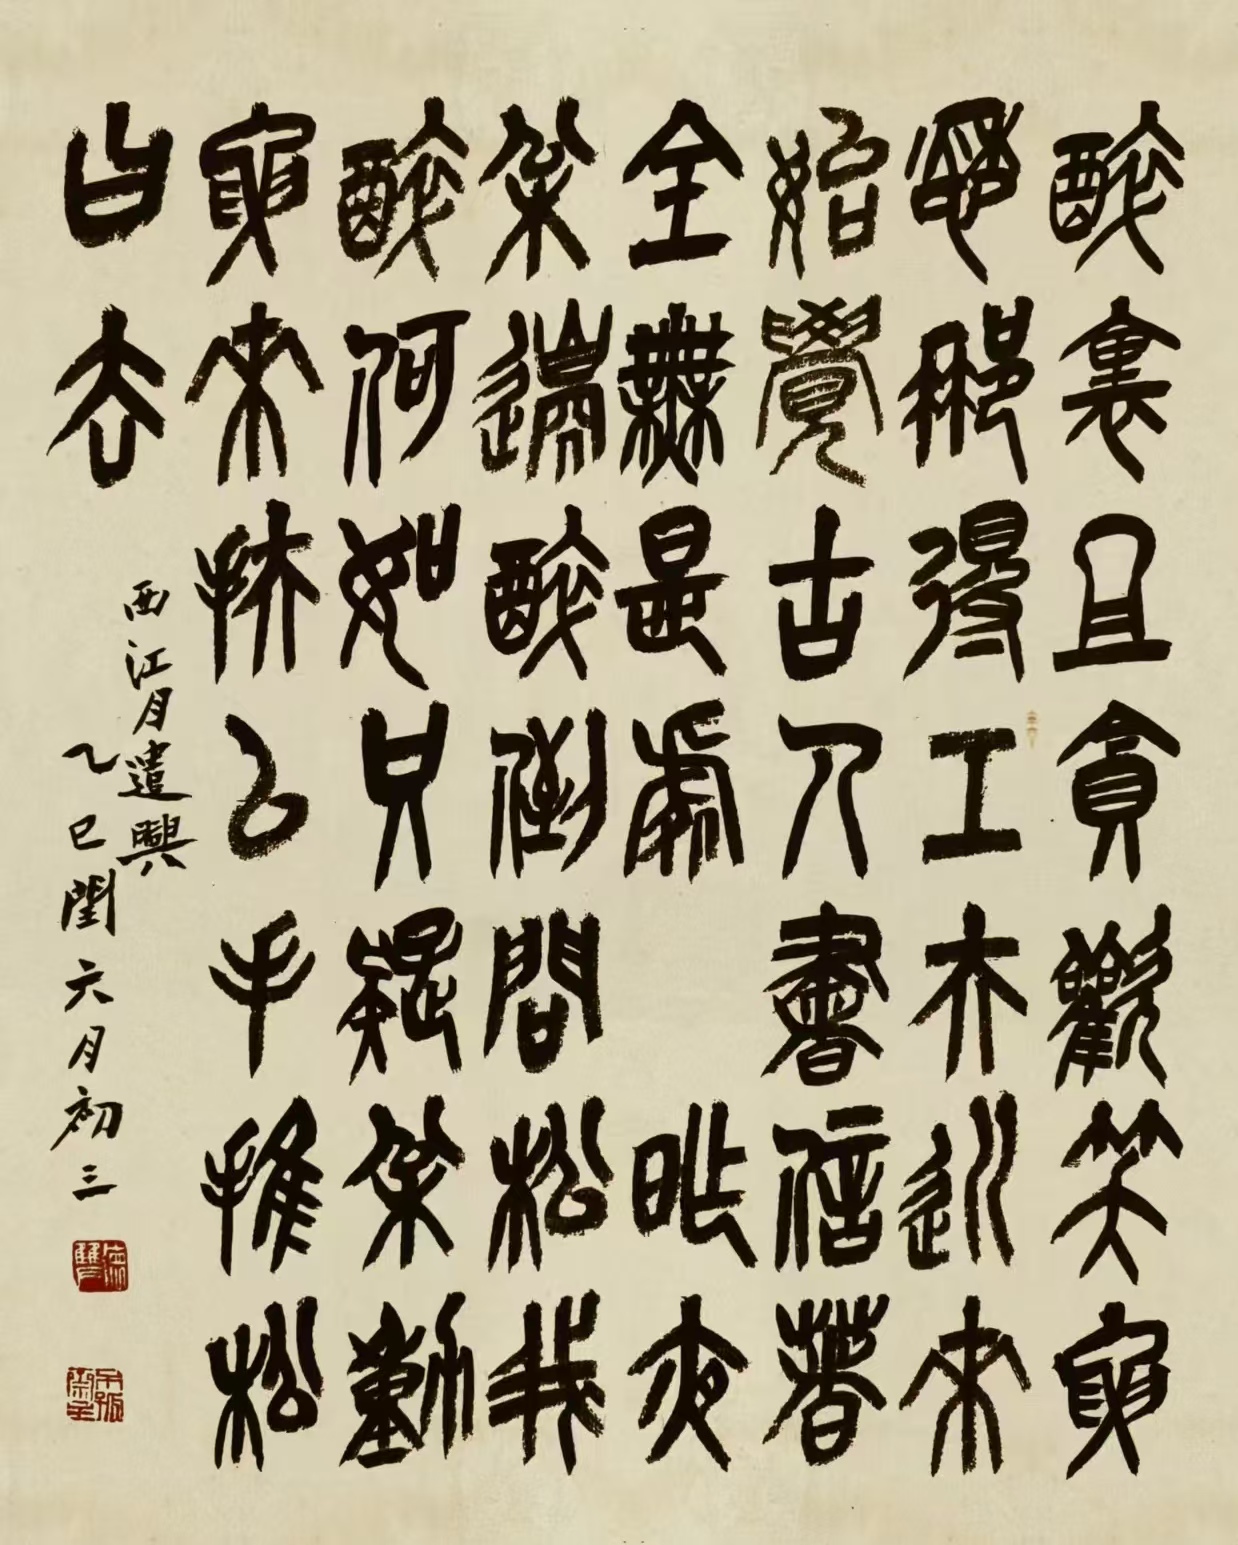 醉裏且貪歡笑要
愁那得工夫近來
始覺古人書信著
全無是處 昨夜
枀邊醉倒問松我
醉何如只疑枀動
要來扶以手推松
曰去
西江月遣興
乙巳閏六月初三